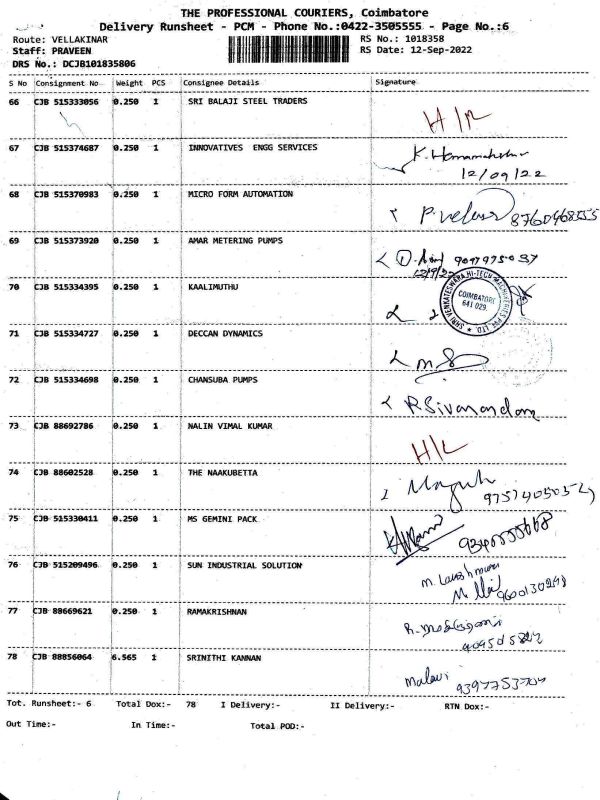 THE PROFESSIONAL COURIERS, Coimbatore
Delivery Runsheet - PCM - Phone No.:0422-3505555 - Page No.:6
Route: VELLAKINAR RS No.: 1018358
Staff: PRAVEEN RS Date: 12-Sep-2022
DRS No.: DCJB101835806
S No Consignment No Weight PCS Consignee Details Signature
66 CJB 515333056 0.250 1 SRI BALAJI STEEL TRADERS
67 CJB 515374687 0.250 1 INNOVATIVES ENGG SERVICES
12/09/22
68 CJB 515370983 0.250 1 MICRO FORM AUTOMATION
69 CJB 515373920 0.250 1 AMAR METERING PUMPS
70 CJB 515334395 0.250 1 KAALIMUTHU
SHRI VENKATESWARA HI-TECH MACHINERIES PVT LTD.
COIMBATORE
641 029.
71 CJB 515334727 0.250 1 DECCAN DYNAMICS
72 CJB 515334698 0.250 1 CHANSUBA PUMPS
R Sivanandam
73 CJB 88692786 0.250 1 NALIN VIMAL KUMAR
74 CJB 88602528 0.250 1 THE NAAKUBETTA
75 CJB 515330411 0.250 1 MS GEMINI PACK
76 CJB 515209496 0.250 1 SUN INDUSTRIAL SOLUTION
77 CJB 88669621 0.250 1 RAMAKRISHNAN
78 CJB 88856064 6.565 1 SRINITHI KANNAN
Tot. Runsheet:- 6 Total Dox:- 78 I Delivery:- II Delivery:- RTN Dox:-
Out Time:- In Time:- Total POD:-